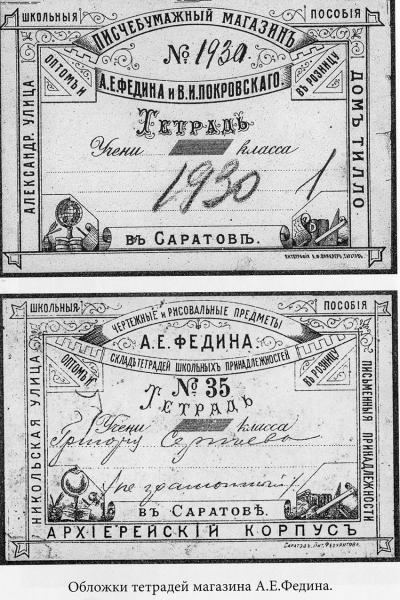 ШКОЛЬНЫЯ ПОСОБІЯ
ПИСЧЕБУМАЖНЫЙ МАГАЗИНЪ
№ 1930.
ОПТОМЪ И ВЪ РОЗНИЦУ
А.Е.ФЕДИНА и В.И.ПОКРОВСКАГО.
АЛЕКСАНДР. УЛИЦА
ДОМЪ ТИЛЛО
ТЕТРАДЬ
Учени класса
1930 1
ВЪ САРАТОВѢ.
ШКОЛЬНЫЯ ПОСОБІЯ
ЧЕРТЕЖНЫЕ и РИСОВАЛЬНЫЕ ПРЕДМЕТЫ
А.Е.ФЕДИНА.
ОПТОМЪ И ВЪ РОЗНИЦУ
СКЛАДЪ ТЕТРАДЕЙ ШКОЛЬНЫХЪ ПРИНАДЛЕЖНОСТЕЙ
№ 35
ТЕТРАДЬ
НИКОЛЬСКАЯ УЛИЦА
ПИСЬМЕННЫЯ ПРИНАДЛЕЖНОСТИ
Учени класса
ВЪ САРАТОВѢ.
АРХІЕРЕЙСКІЙ КОРПУСЪ
Обложки тетрадей магазина А.Е.Федина.